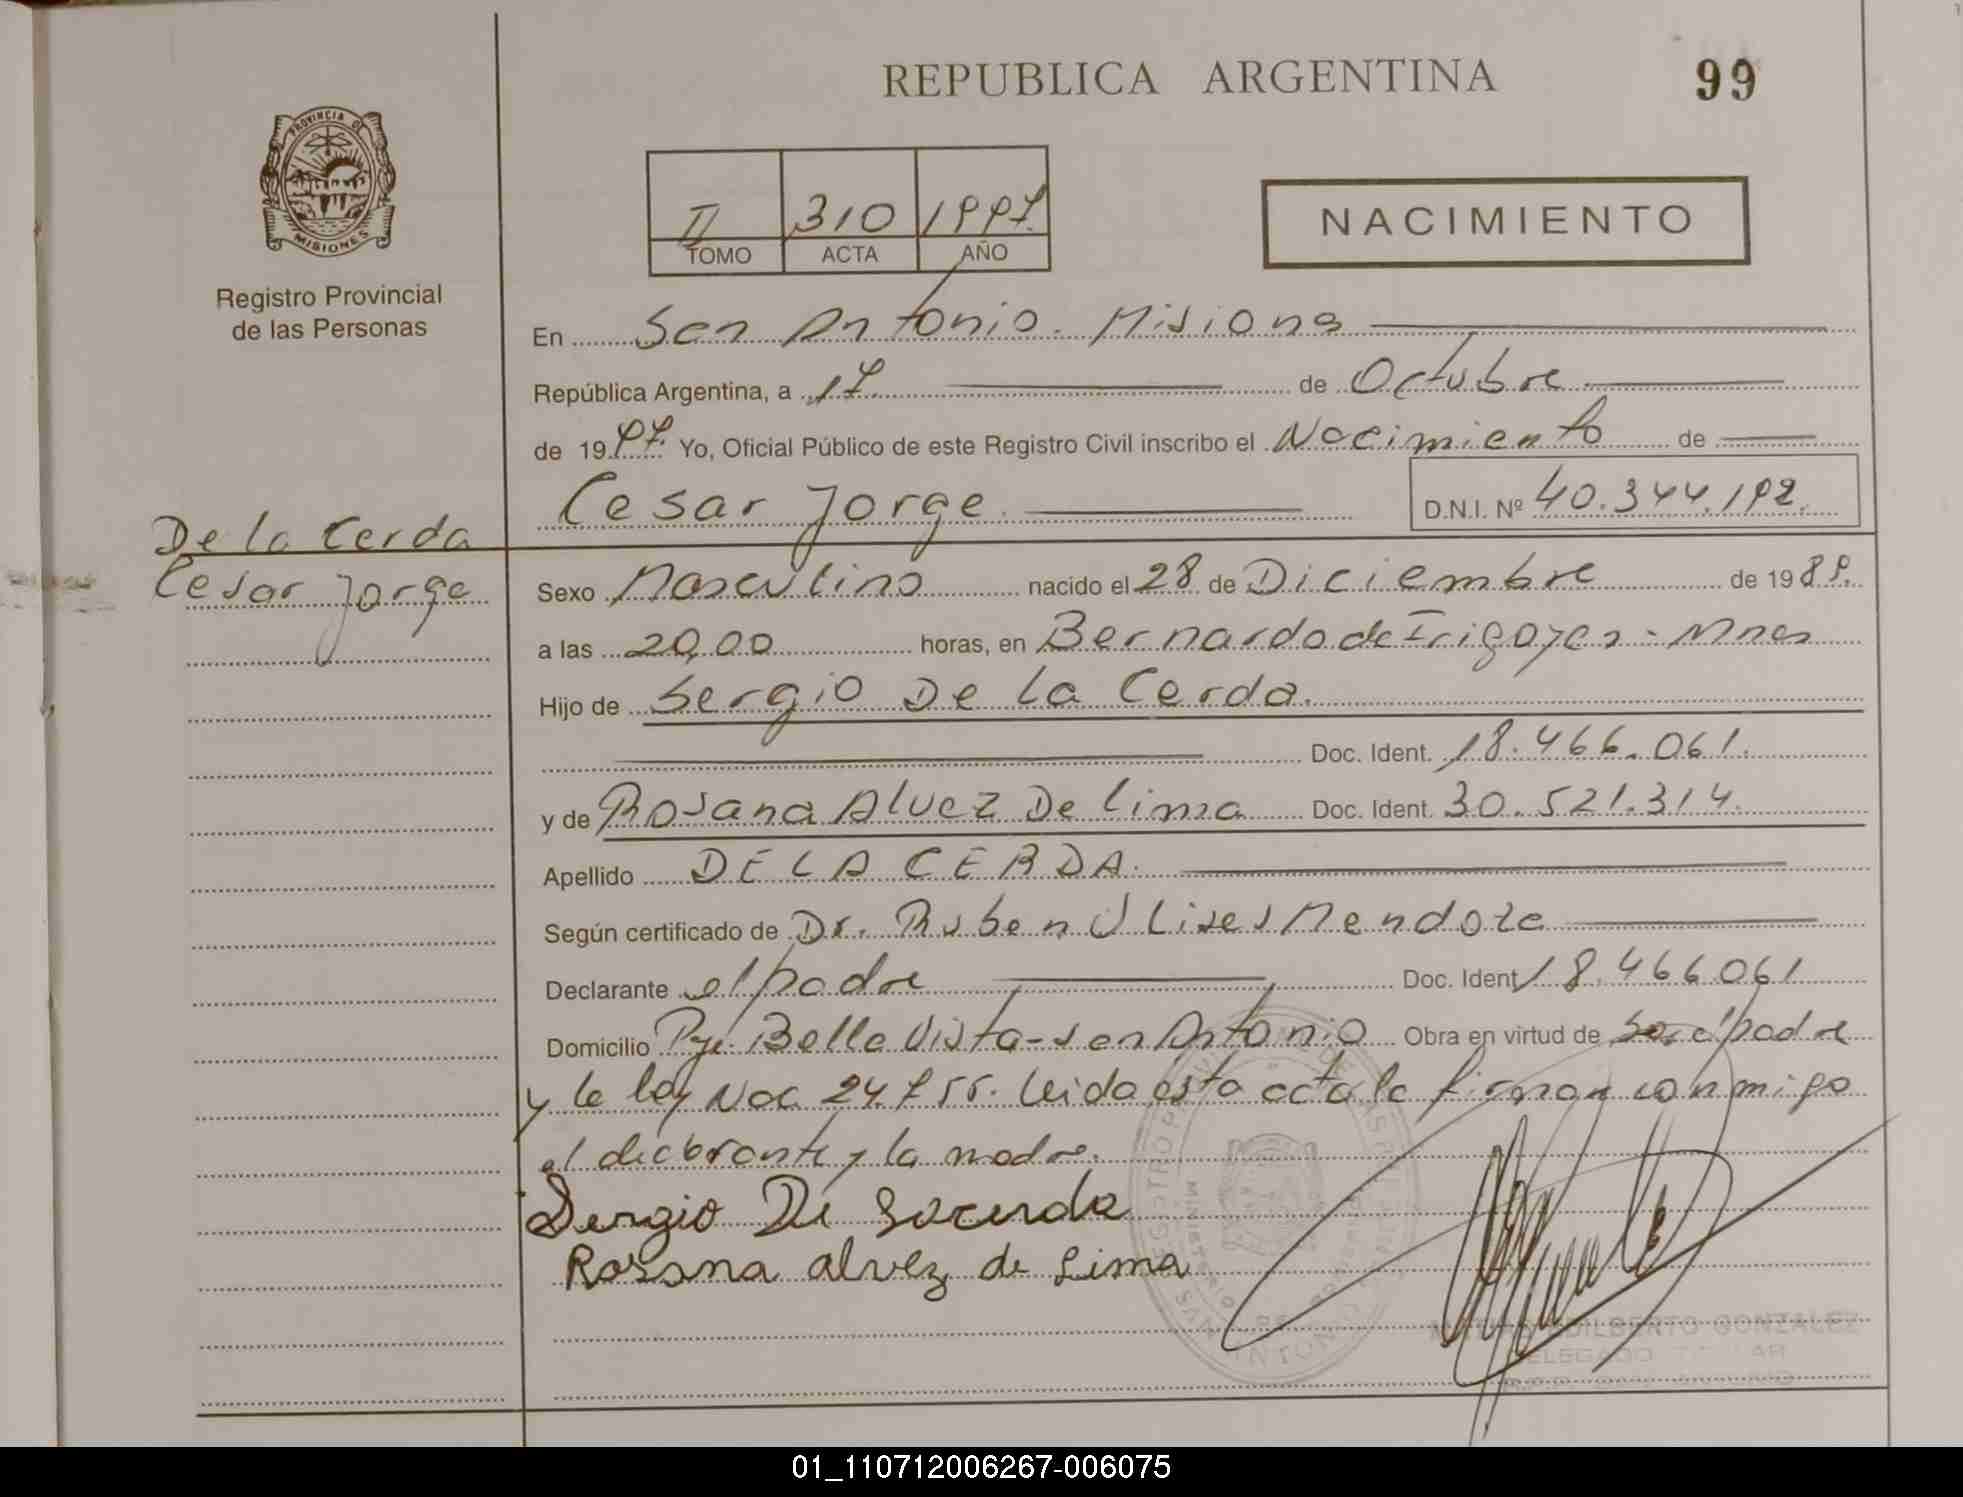 REPUBLICA ARGENTINA
99
PROVINCIA DE
MISIONES
Registro Provincial
de las Personas
II 310 1997
TOMO ACTA AÑO
NACIMIENTO
En San Antonio. Misiones
República Argentina, a 17 de Octubre
de 1997 Yo, Oficial Público de este Registro Civil inscribo el Nacimiento de
Cesar Jorge D.N.I. Nº 40.344.192.
De la Cerda
Cesar Jorge
Sexo Masculino nacido el 28 de Diciembre de 1989.
a las 20,00 horas, en Bernardo de Irigoyen - Mnes
Hijo de Sergio De la Cerda.
Doc. Ident. 18.466.061.
y de Rosana Alvez De lima Doc. Ident. 30.521.314.
Apellido DE LA CERDA.
Según certificado de Dr. Ruben Ulises Mendoza
Declarante el padre Doc. Ident 18.466.061
Domicilio Pje. Bella Vista - San Antonio Obra en virtud de ser el padre
y la ley Nac. 24.755. leida esta acta la firman conmigo
el declarante y la madre.
Sergio De Lacerda
Rosana alvez de Lima
EDILBERTO GONZALEZ
01_110712006267-006075